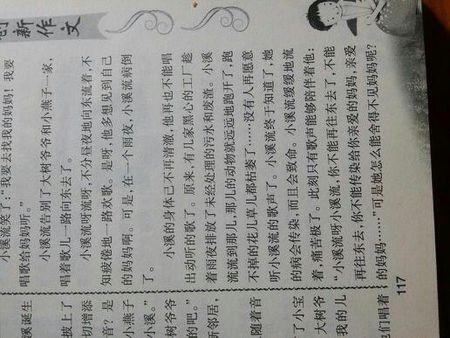 创新作文
溪诞生
披上了
切增添
音？是
小燕子
小溪。”
树爷爷
的吧。”
新邻居，
随着音
了小宝
大树爷
我的儿
们唱着
小溪流笑了：“我要去找我的妈妈！我要
唱歌给妈妈听。”
小溪流告别了大树爷爷和小燕子一家，
唱着歌儿一路向东去了。
小溪流呀流呀，不分昼夜地向东流着，不
知疲倦地一路欢歌。是呀，他多想见到自己
的妈妈啊。可是，在一个雨夜，小溪流病倒
了。
小溪的身体已不再清澈，他再也不能唱
出动听的歌了。原来，有几家黑心的工厂趁
着雨夜排放了未经处理的污水和废流。小溪
流流到那儿，那儿的动物就远远地跑开了，跑
不掉的花儿草儿都枯萎了……没有人再愿意
听小溪流的歌声了。小溪流终于知道了，她
的病会传染，而且会致命。小溪流缓缓地流
着，痛苦极了。此刻只有歌声能够陪伴着他：
“小溪流呀小溪流，你不能再往东去了，不能
再往东去，你不能传染给你亲爱的妈妈，亲爱
的妈妈……”可是她怎么能舍得不见妈妈呢？
117